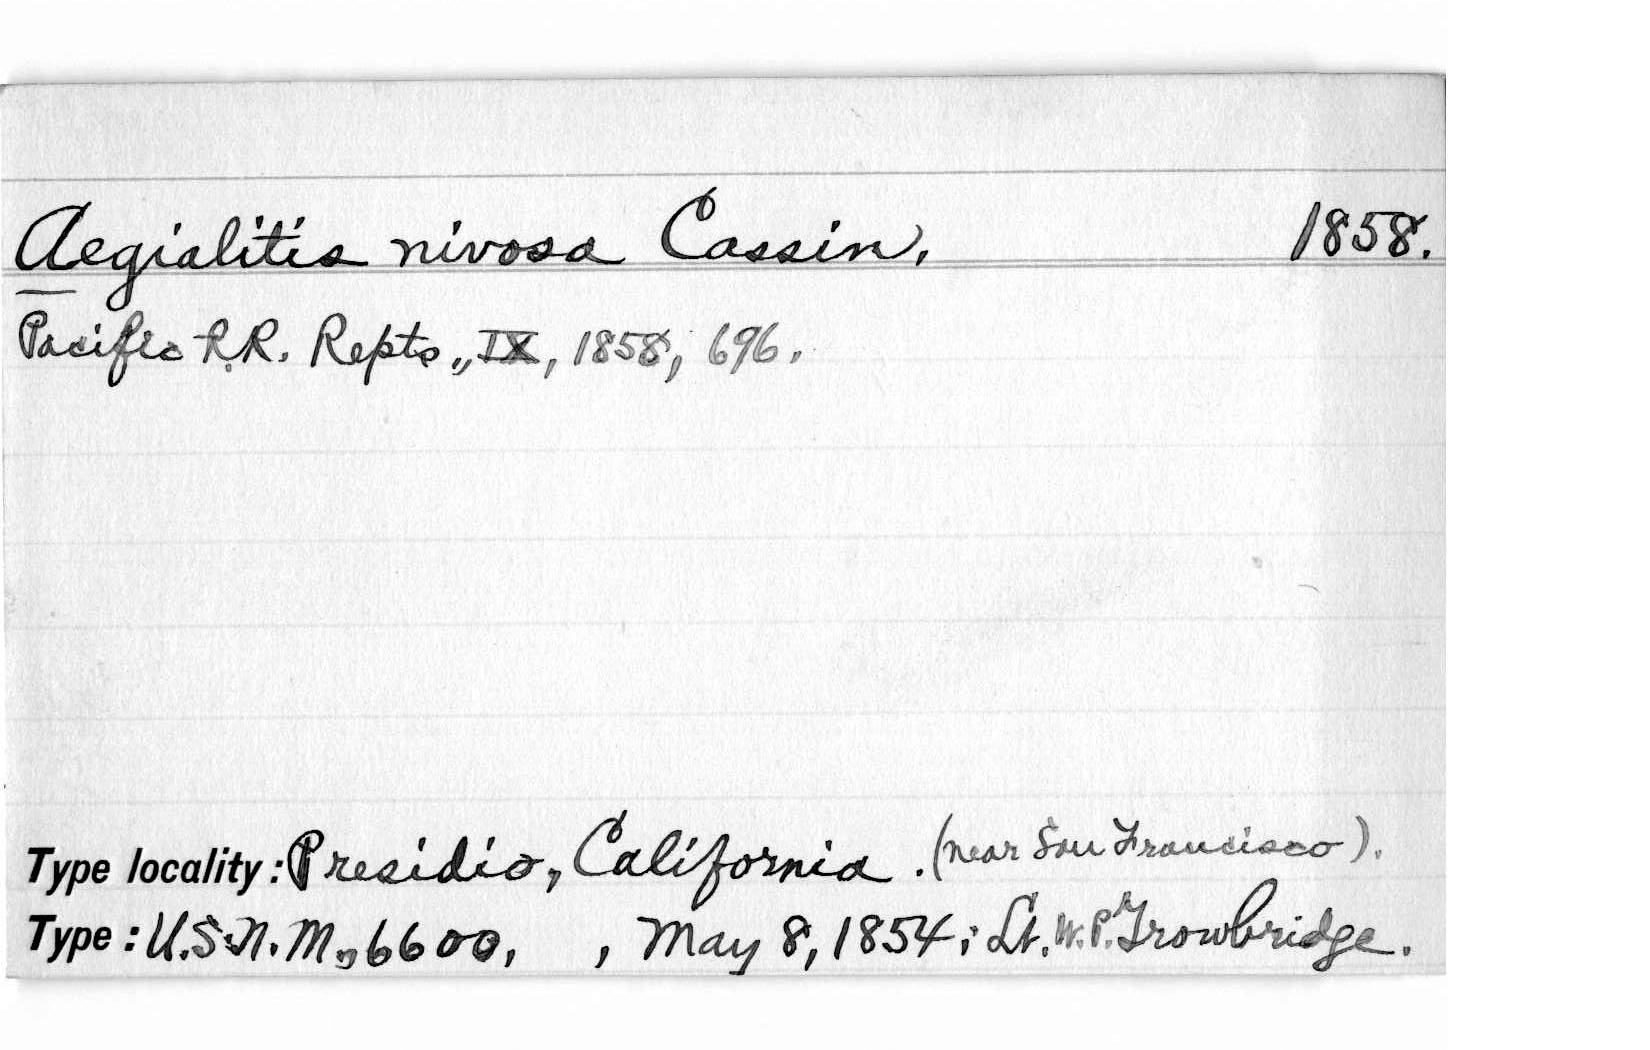 Aegialitis nivosa Cassin, 1858.
Pacific R.R. Repts., IX, 1858, 696.
Type locality: Presidio, California. (near San Francisco).
Type: U.S.N.M., 6600, , May 8, 1854; Lt. W.P. Trowbridge.